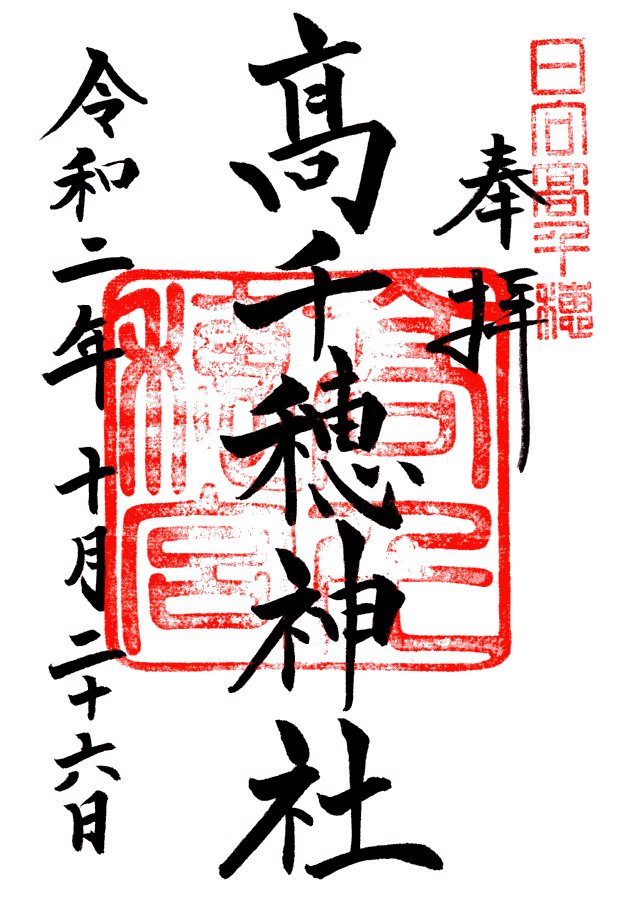 日向髙千穂
奉拝
髙千穂神社
令和二年十月二十六日